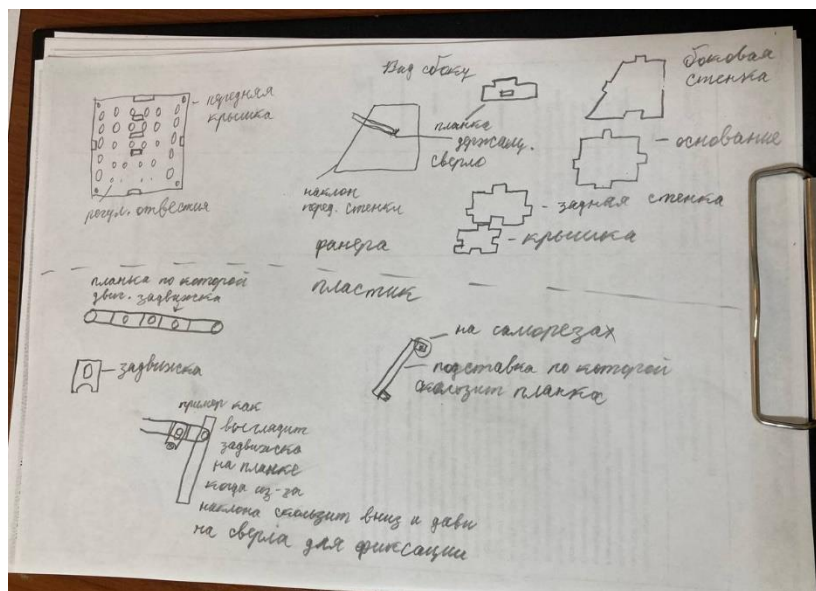 передняя
крышка
регул. отвестия
Вид сбоку
планка
держащ.
сверло
наклон
перед. стенки
боковая
стенка
основание
задная стенка
крышка
фанера
пластик
планка по которой
двиг. задвижка
задвижка
на саморезах
подставка по которой
скользит планка
пример как
выгладит
задвижка
на планке
когда из-за
наклона скользит вниз и дави
на сверла для фиксации